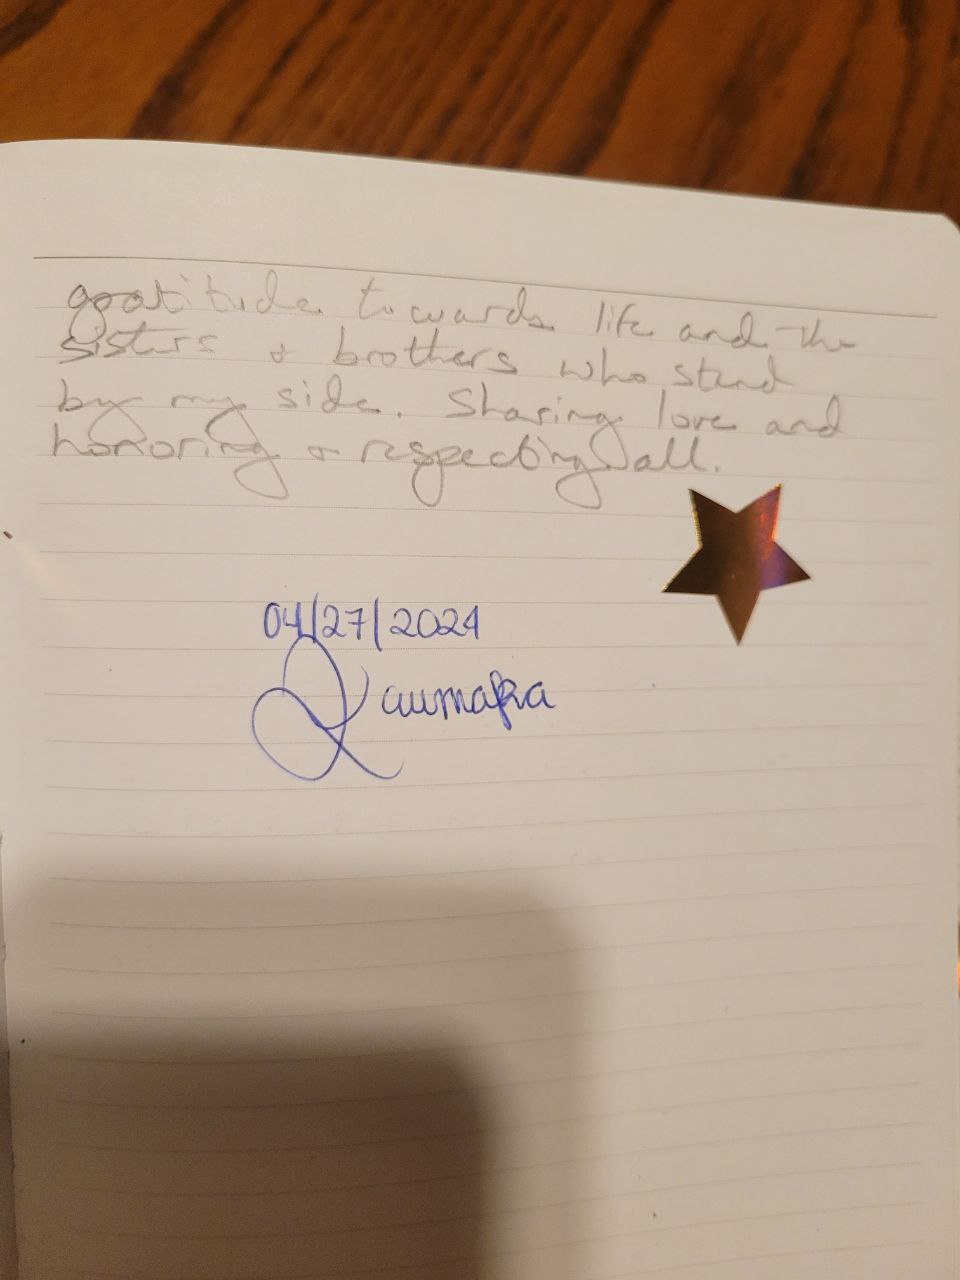 gratitude towards life and the
sisters & brothers who stand
by my side. Sharing love and
honoring & respecting all.
04/27/2024